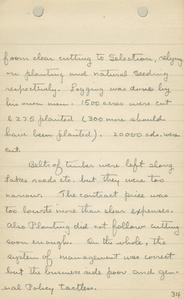 from clear cutting to Selection, relying
on planting and natural Seeding
respectively. Logging was done by
his own men. 1500 acres were cut
& 275 planted (300 more should
have been planted). 20000 cds. were
cut.
Belts of timber were left along
Lakes roads etc. but they were too
narrow. The contract price was
too low to more than clear expenses.
Also Planting did not follow cutting
soon enough. On the whole, the
system of management was correct
but the business side poor and gen-
eral Policy tactless.